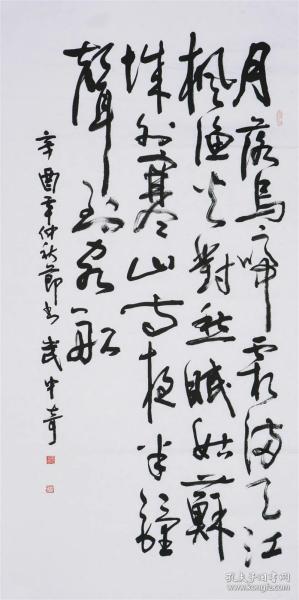 月落烏啼霜满天江
楓漁火對愁眠姑蘇
城外寒山寺夜半鐘
聲到客船
辛酉年仲秋節書 武中奇
孔夫子旧书网